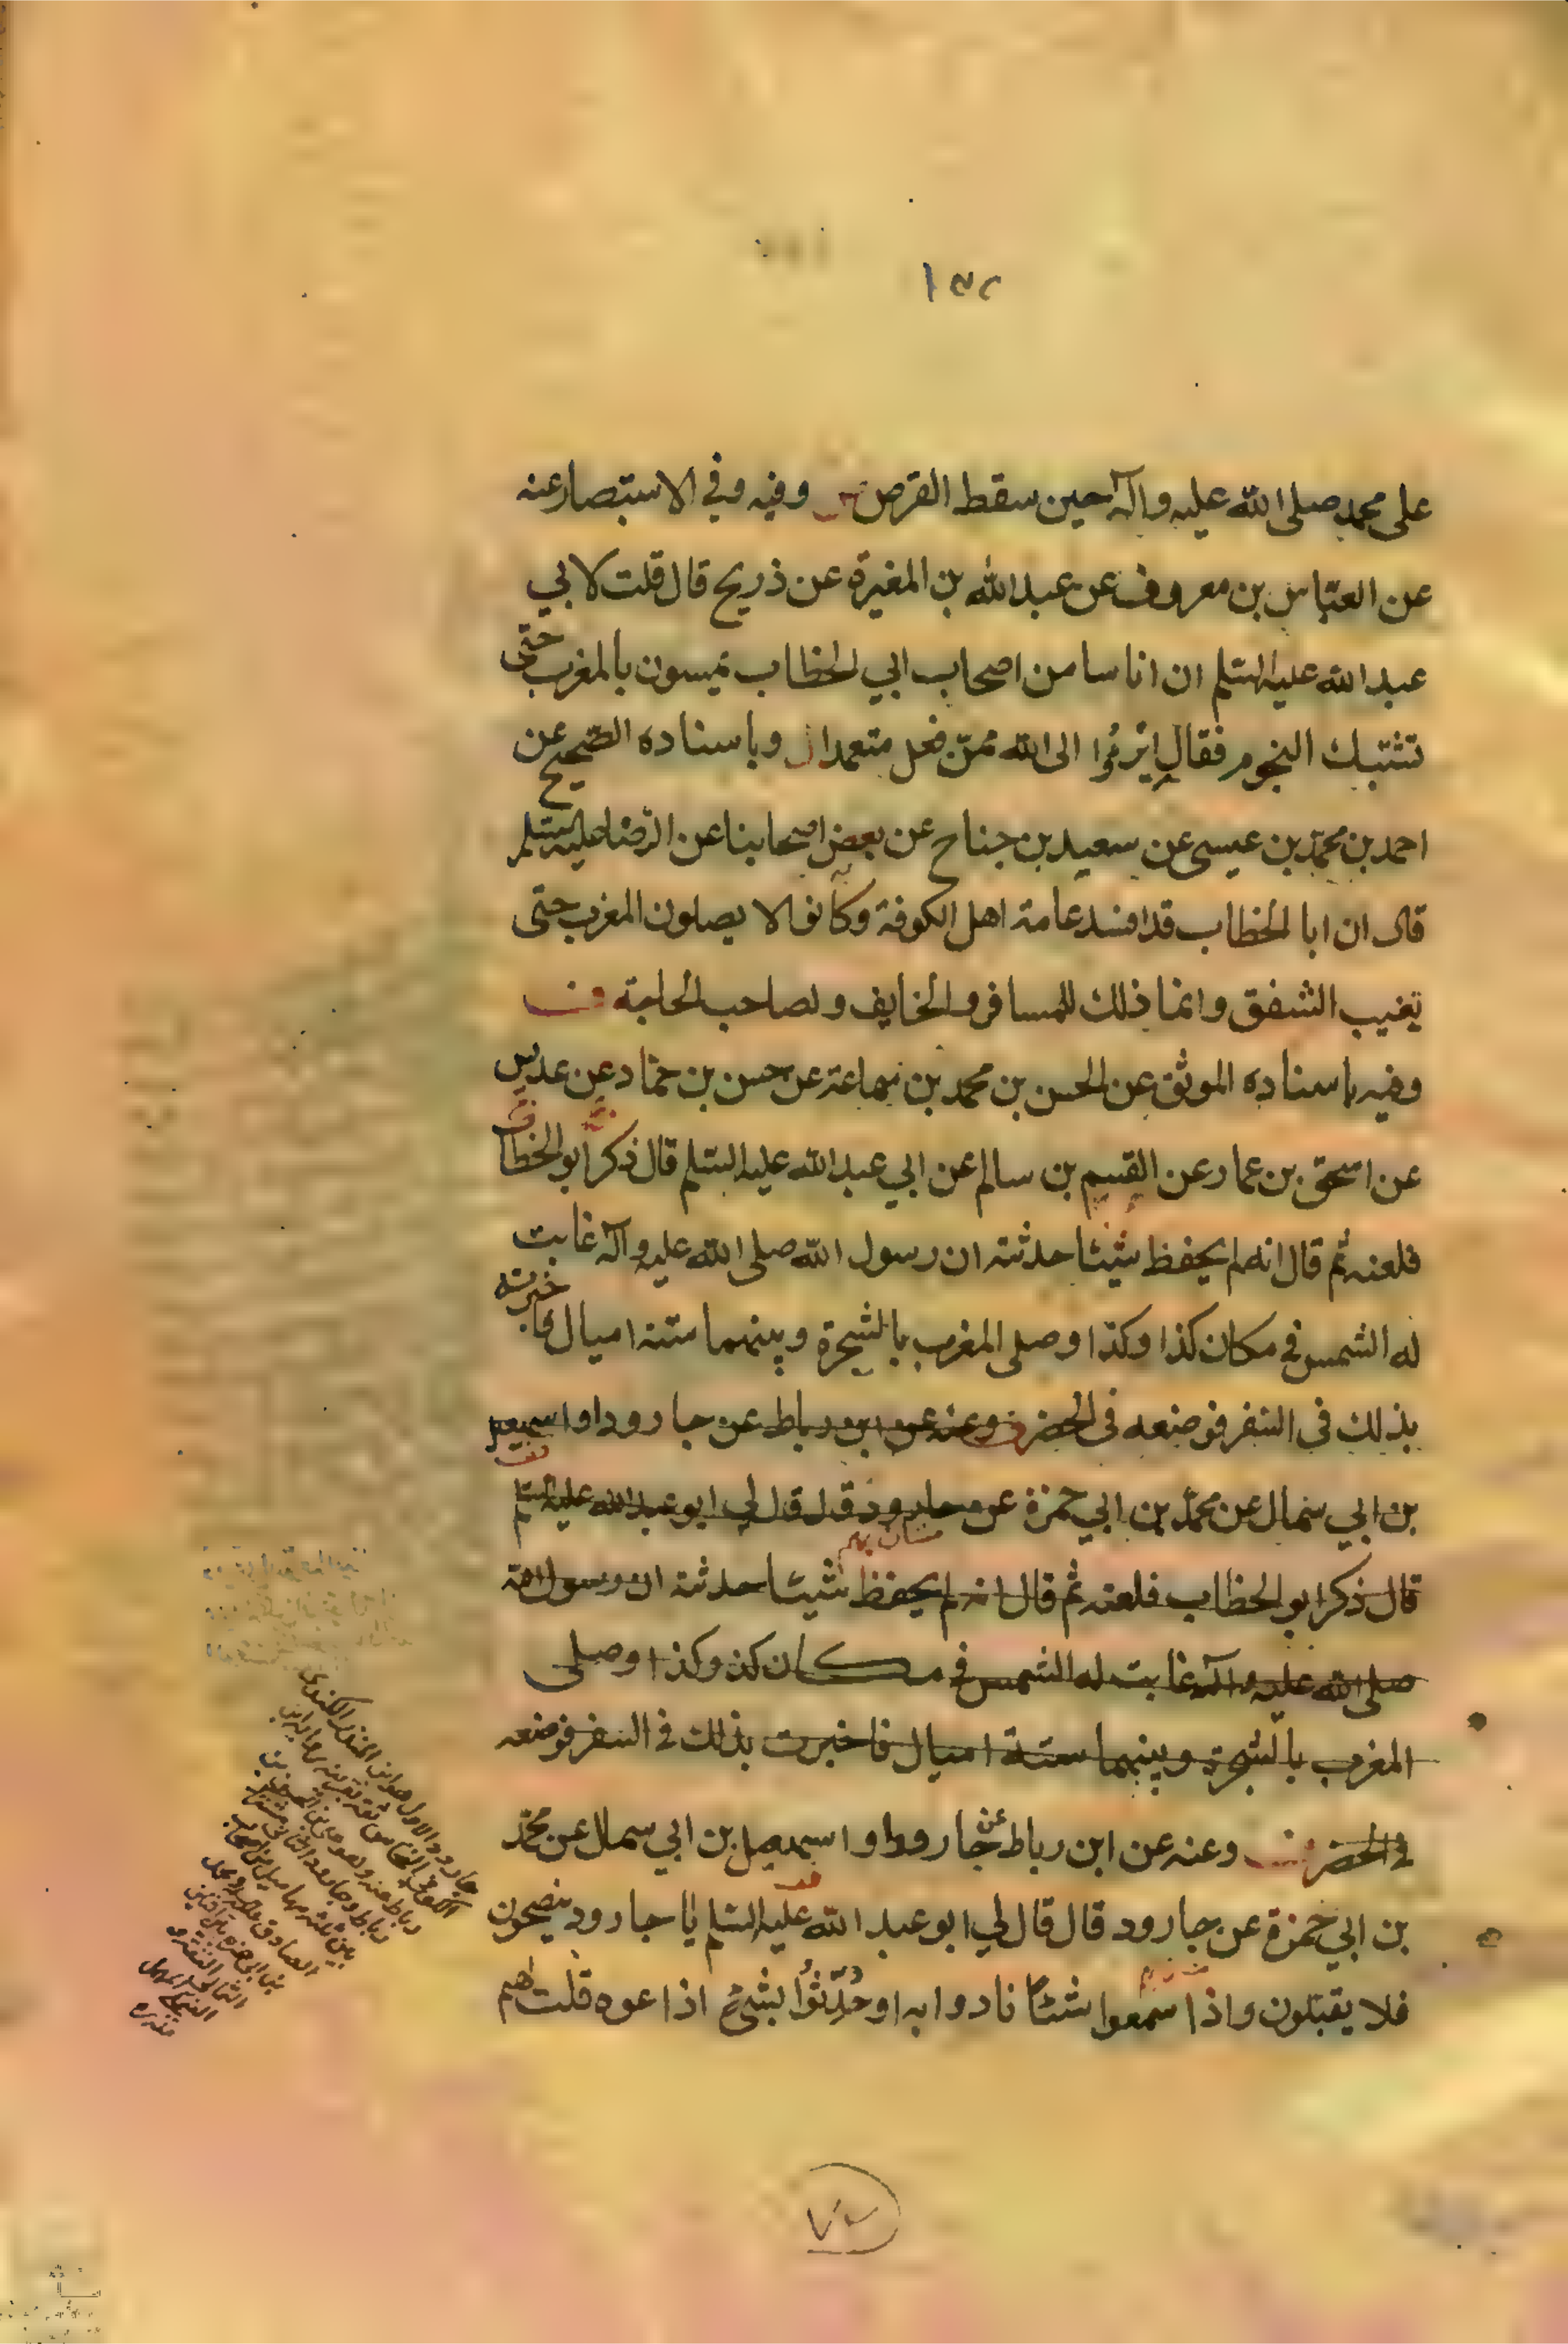 ١٣٢
على محمد صلى الله عليه وآله حين سقط القرص وفيه وفي الاستبصار عنه
عن العباس بن معروف عن عبد الله بن المغيرة عن ذريح قال قلت لابي
عبد الله عليه السلم ان اناسا من اصحاب ابي الخطاب يمسون بالمغرب حتى
تشتبك النجوم فقال ابرءوا الى الله ممن فعل متعمدا وباسناده الصحيح عن
احمد بن محمد بن عيسى عن سعيد بن جناح عن بعض اصحابنا عن الرضا عليه السلم
قال ان ابا الخطاب قد افسد عامة اهل الكوفة وكانوا لا يصلون المغرب حتى
تغيب الشفق وانما ذلك للمسافر والخايف ولصاحب الحاجة
وفيه باسناده الموثق عن الحسن بن محمد بن سماعة عن حسن بن حماد عن عديس
عن اسحق بن عمار عن القسم بن سالم عن ابي عبد الله عليه السلم قال ذكر ابو الخطاب
فلعنه ثم قال انه لم يحفظ شيئا حدثته ان رسول الله صلى الله عليه وآله غابت
له الشمس في مكان كذا وكذا وصلى المغرب بالشجرة وبينهما ستة اميال فاخبرته
بذلك في السفر فوضعه في الحضر وعنه عن ابن رباط عن جارود او اسمعيل
بن ابي سمال عن محمد بن ابي حمزة عن جارود قال قال لي ابو عبد الله عليه السلم
قال ذكر ابو الخطاب فلعنه ثم قال انه لم يحفظ شيئا حدثته ان رسول الله
صلى الله عليه وآله غابت له الشمس في مكان كذا وكذا وصلى
المغرب بالشجرة وبينهما ستة اميال فاخبرت بذلك في السفر فوضعه
في الحضر وعنه عن ابن رباط عن جارود او اسمعيل بن ابي سمال عن محمد
بن ابي حمزة عن جارود قال قال لي ابو عبد الله عليه السلم يا جارود ينصحون
فلا يقبلون واذا سمعوا شيئا نادوا به او حدثوا بشيء اذاعوه قلت لهم